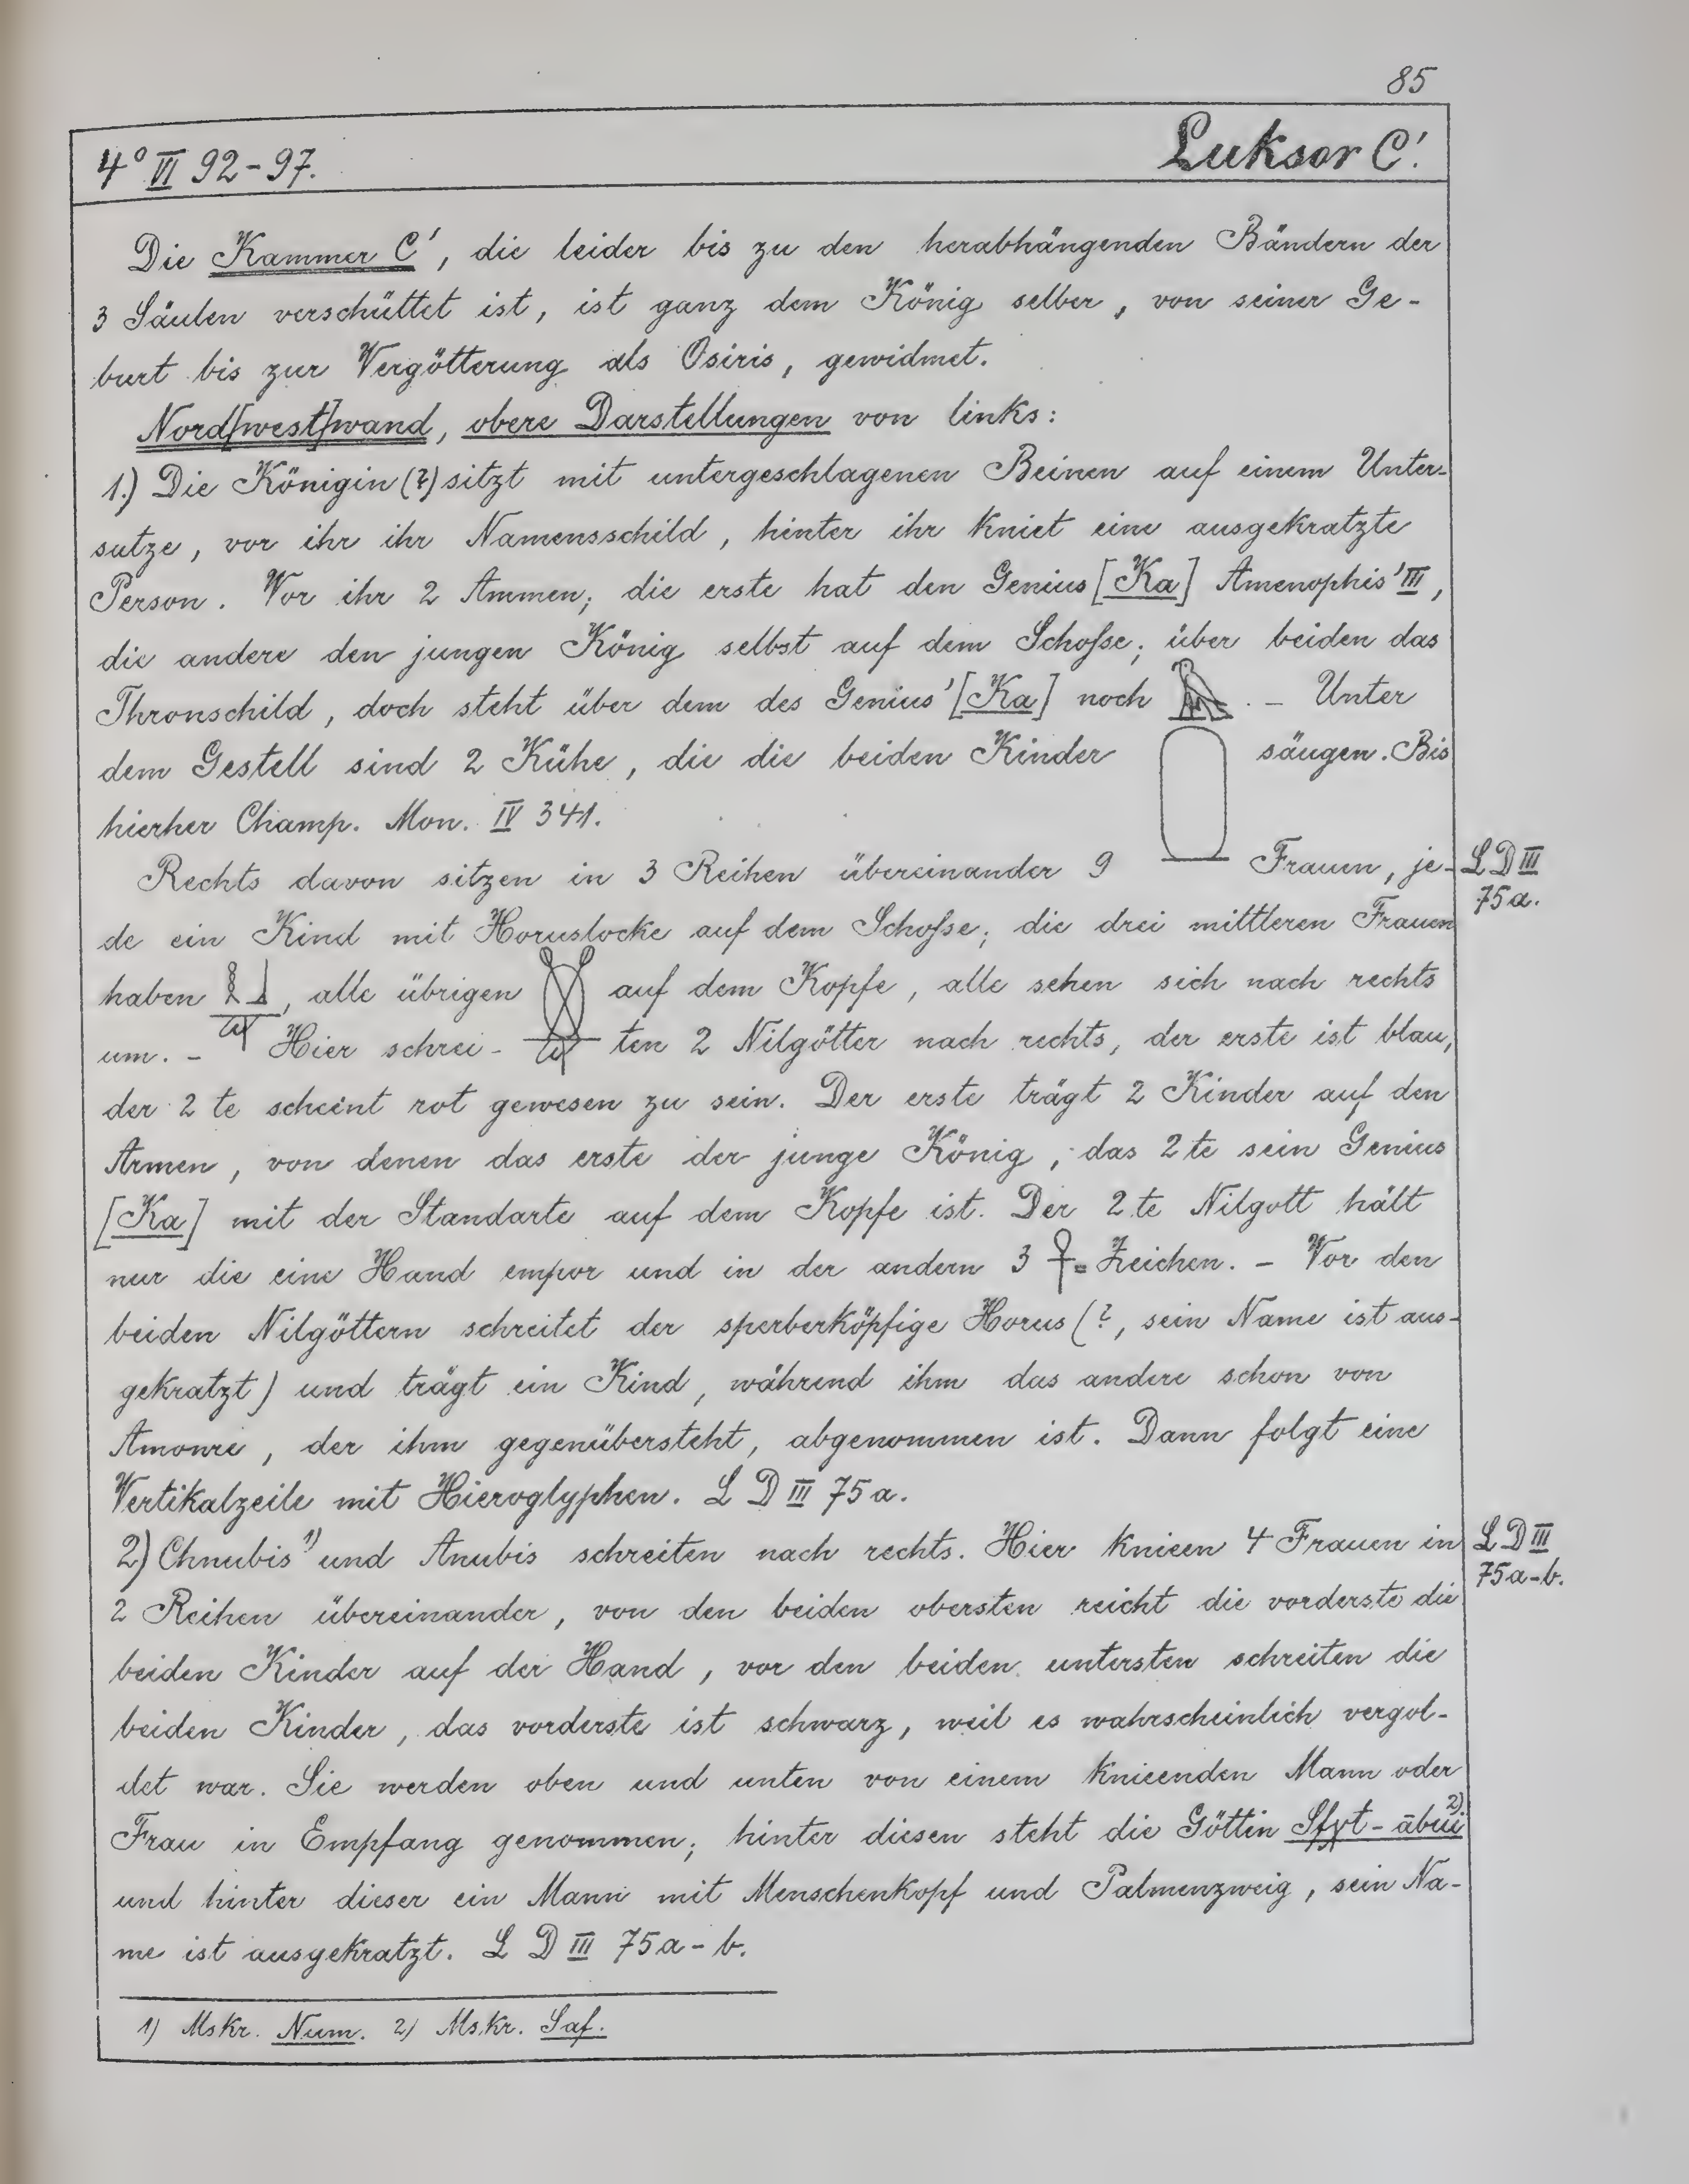 85
4° VI 92-97.
Luksor C'.
Die Kammer C', die leider bis zu den herabhängenden Bändern der
3 Säulen verschüttet ist, ist ganz dem König selber, von seiner Ge-
burt bis zur Vergötterung als Osiris, gewidmet.
Nord[west]wand, obere Darstellungen von links:
1.) Die Königin (?) sitzt mit untergeschlagenen Beinen auf einem Unter-
satze, vor ihr ihr Namensschild, hinter ihr kniet eine ausgekratzte
Person. Vor ihr 2 Ammen; die erste hat den Genius [Ka] Amenophis' III,
die andere den jungen König selbst auf dem Schoſse; über beiden das
Thronschild, doch steht über dem des Genius' [Ka] noch . – Unter
dem Gestell sind 2 Kühe, die die beiden Kinder säugen. Bis
hierher Champ. Mon. IV 341.
Rechts davon sitzen in 3 Reihen übereinander 9 Frauen, je-
LD III
75a.
de ein Kind mit Horuslocke auf dem Schoſse; die drei mittleren Frauen
haben , alle übrigen auf dem Kopfe, alle sehen sich nach rechts
um. – Hier schrei- ten 2 Nilgötter nach rechts, der erste ist blau,
der 2te scheint rot gewesen zu sein. Der erste trägt 2 Kinder auf den
Armen, von denen das erste der junge König, das 2te sein Genius
[Ka] mit der Standarte auf dem Kopfe ist. Der 2te Nilgott hält
nur die eine Hand empor und in der andern 3 ☥= Zeichen. – Vor den
beiden Nilgöttern schreitet der sperberköpfige Horus (?, sein Name ist aus-
gekratzt) und trägt ein Kind, während ihm das andere schon von
Amonre, der ihm gegenübersteht, abgenommen ist. Dann folgt eine
Vertikalzeile mit Hieroglyphen. L D III 75a.
2) Chnubis 1) und Anubis schreiten nach rechts. Hier knieen 4 Frauen in
LD III
75a-b.
2 Reihen übereinander, von den beiden obersten reicht die vorderste die
beiden Kinder auf der Hand, vor den beiden untersten schreiten die
beiden Kinder, das vorderste ist schwarz, weil es wahrscheinlich vergol-
det war. Sie werden oben und unten von einem knieenden Mann oder
Frau in Empfang genommen; hinter diesen steht die Göttin Sfχt-ābui 2)
und hinter dieser ein Mann mit Menschenkopf und Palmenzweig, sein Na-
me ist ausgekratzt. L D III 75a-b.
1) Mskr. Num. 2) Mskr. Saf.